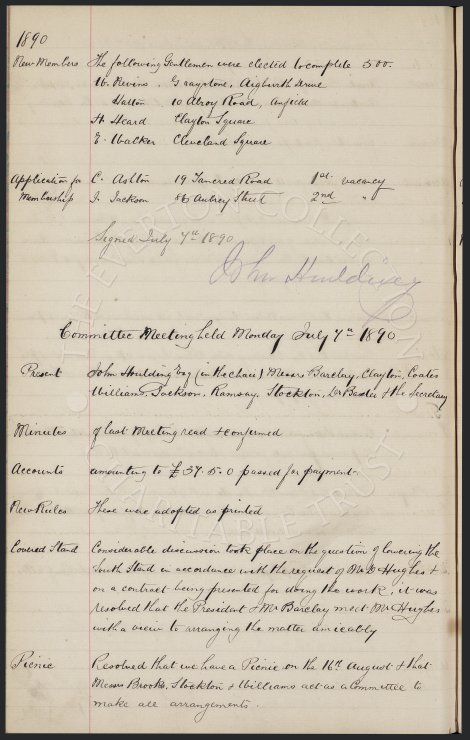 1890
New Members The following Gentlemen were elected to complete 500.
W. Nevins. Graystone, Aigburth Drive
Hatton 10 Alroy Road, Anfield
H Heard Clayton Square
E. Walker Cleveland Square
Application for C. Ashton 19 Tancred Road 1st vacancy
Membership J. Jackson 86 Aubrey Street 2nd "
Signed July 7th 1890
John Houlding
Committee Meeting held Monday July 7th 1890
Present John Houlding Esq (in the chair) Messrs Barclay, Clayton, Coates
Williams, Jackson, Ramsay, Stockton, Dr Baxter & the Secretary
Minutes of last Meeting read & confirmed
Accounts amounting to £37.5.0 passed for payment
New Rules These were adopted as printed
Covered Stand Considerable discussion took place on the question of lowering the
South Stand in accordance with the request of Mr D Hughes &
on a contract being presented for doing the work, it was
resolved that the President & Mr Barclay meet Mr Hughes
with a view to arranging the matter amicably
Picnic Resolved that we have a Picnic on the 16th August & that
Messrs Brooks, Stockton & Williams act as a Committee to
make all arrangements.
THE EVERTON COLLECTION
CHARITABLE TRUST